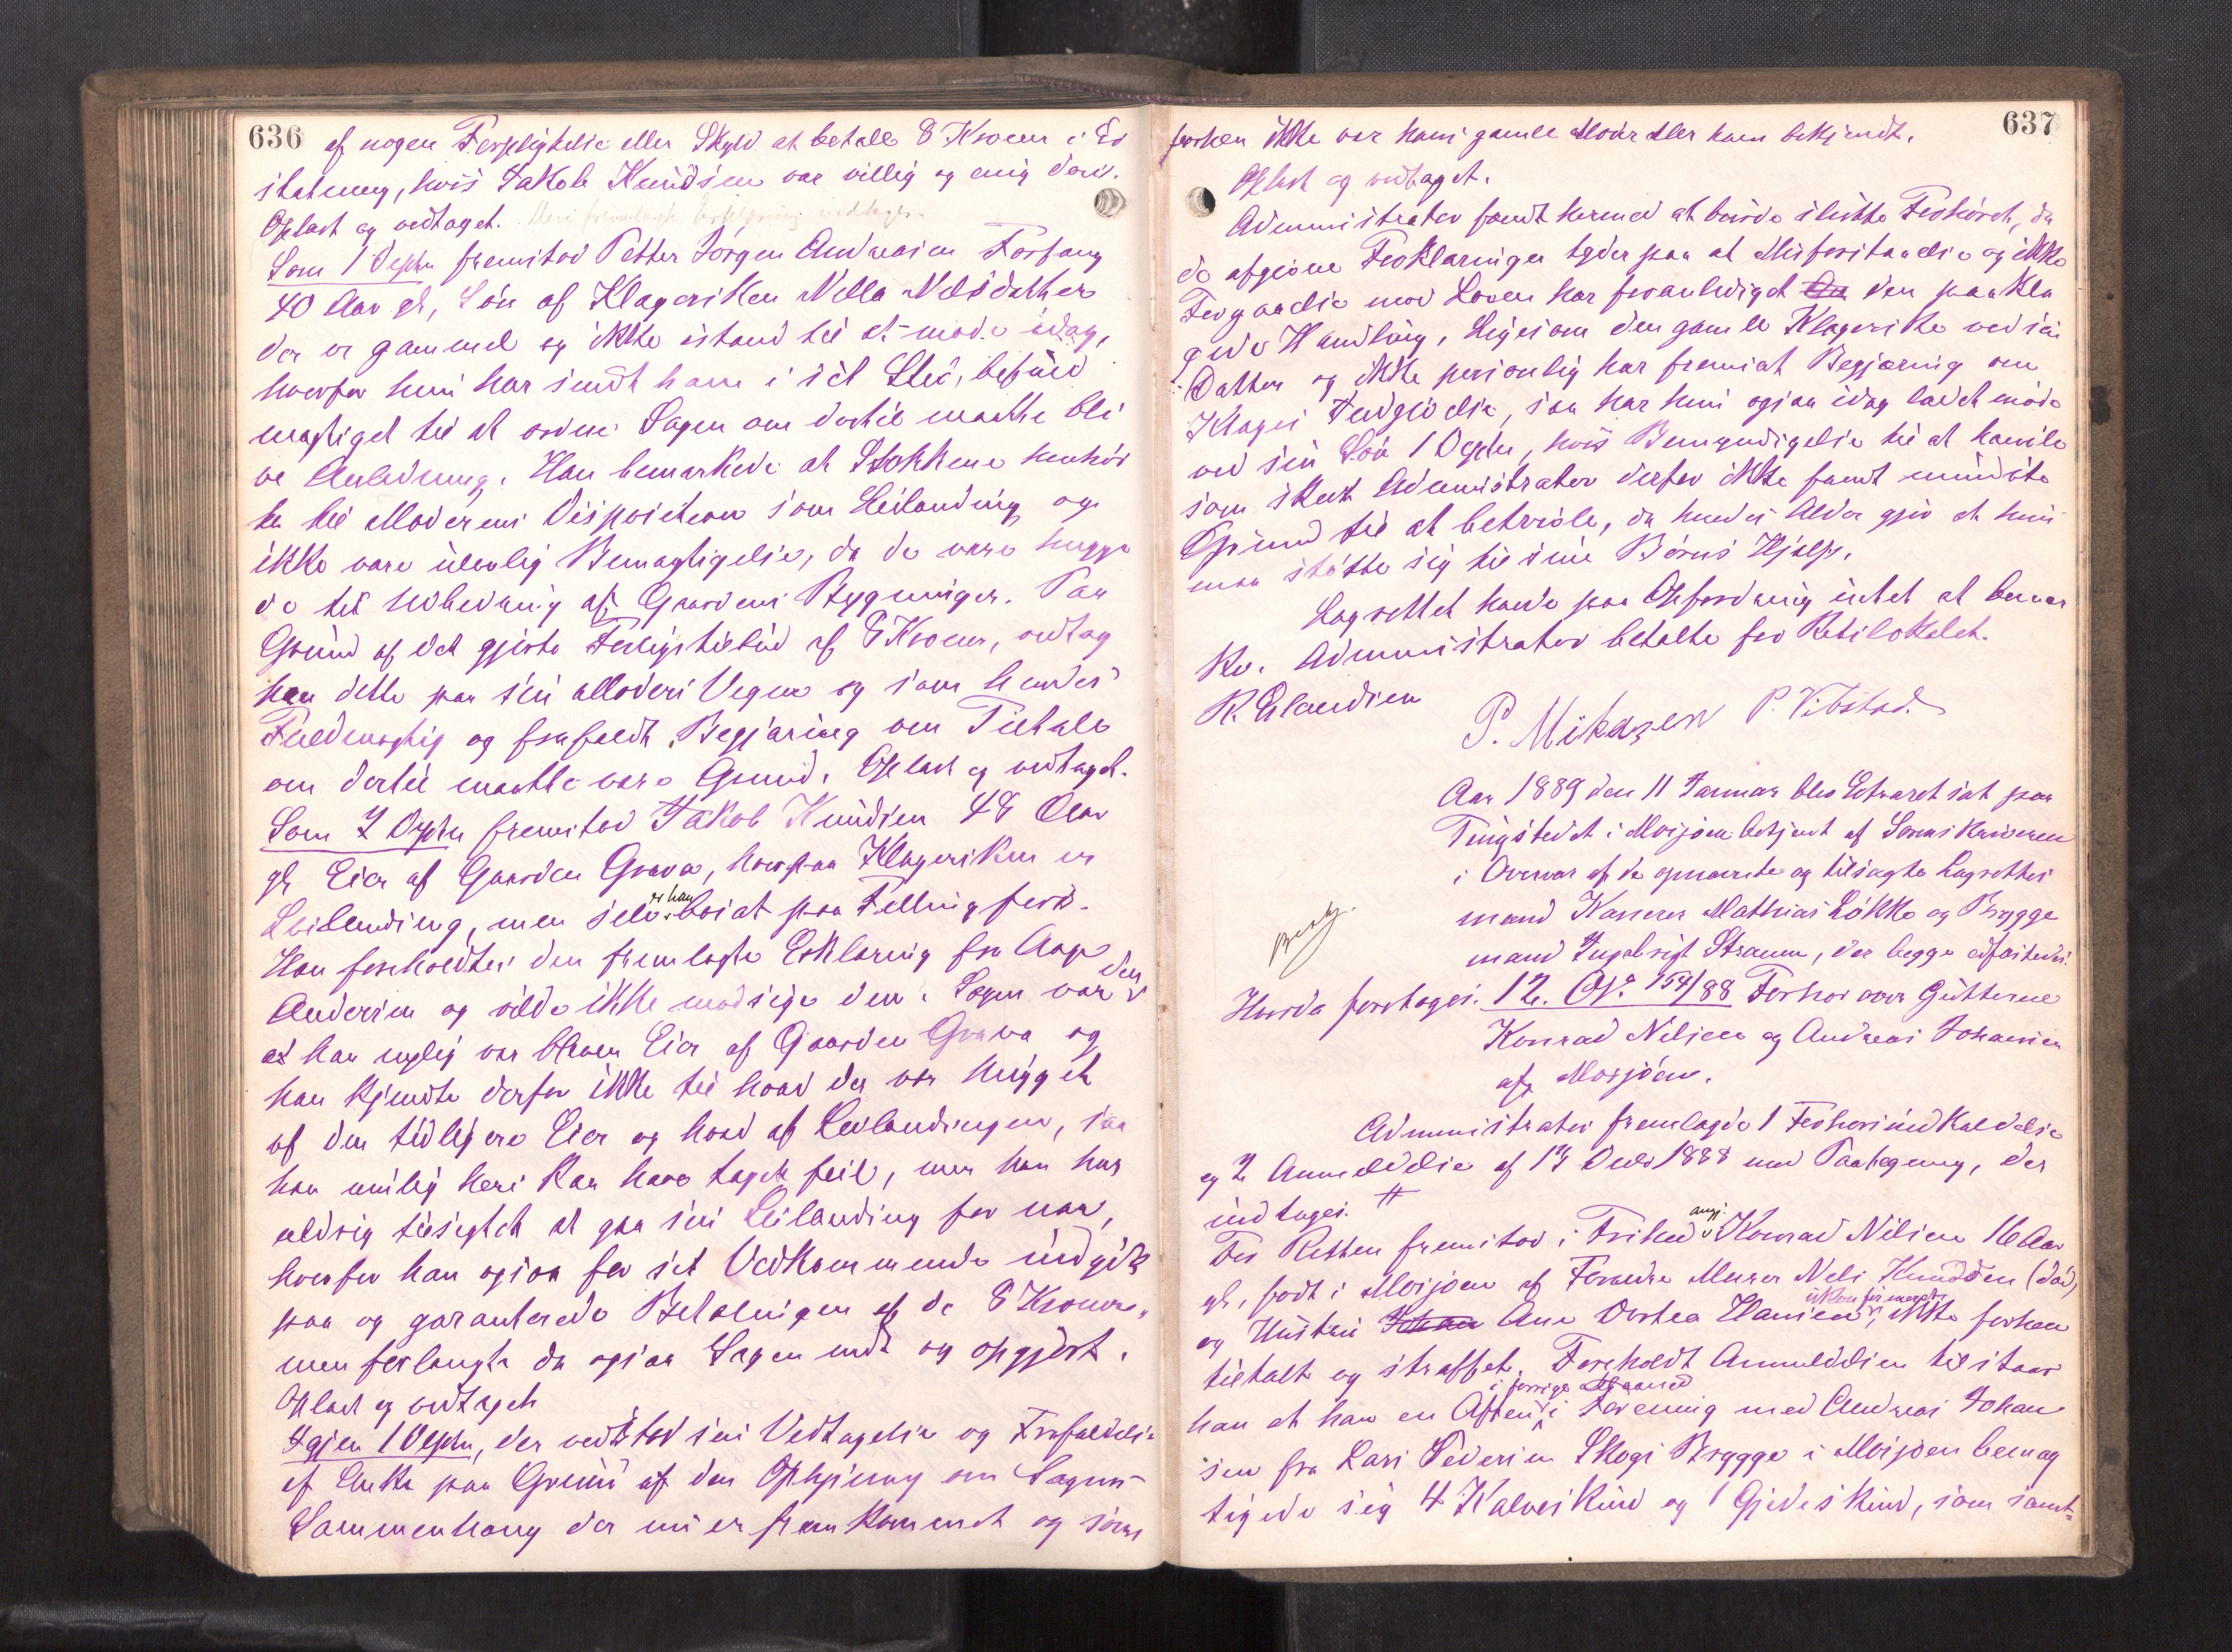 636
af nogen Forpligtelse eller Skyld at betale 8 Kroner i Er
statning, hvis Jakob Knudsen var villig og enig deri.
Oplæst og vedtaget. Den fremlagte Erklæring vedtages.
Som 1 Depnt fremstod Petter Jørgen Andreasen Forfang
40 Aar gl, Søn af Klagersken Nella Nilsdatter
der er gammel og ikke istand til at møde idag,
hvorfor hun har sendt ham i sit Sted, befuld
mægtiget til at ordne Sagen om dertil maatte bli
ve Anledning. Han bemærkede at Stokkene henhør
te til Moderens Disposition som Leilænding og
ikke være ulovlig Bemægtigelse, da de vare hugge
de til Udbedring af Gaardens Bygninger. Paa
Grund af det gjorte Forligstilbud af 8 Kroner, vedtog
han dette paa sin Moders Vegne og som hendes
Fuldmægtig og frafaldt Begjæring om Tiltale
om dertil maatte være Grund. Oplæst og vedtaget.
Som 2 Depnt fremstod Jakob Knudsen 48 Aar
gl Eier af Gaarden Grava, hvorpaa Klagersken er
Leilending, men selv er han bosat paa Fellingfors.
Han foreholdtes den fremlagte Erklæring fra Aage
Andersen og vilde ikke modsige den. Sagen var den
at han nylig var bleven Eier af Gaarden Grava og
han kjendte derfor ikke til hvad der var hugget
af den tidligere Eier og hvad af Leilændingen, saa
han mulig heri kan have taget feil, men han har
aldrig tilsigtet at gaa sin Leilænding for nær,
hvorfor han ogsaa for sit Vedkommende indgik
paa og garanterede Betalingen af de 8 Kroner,
men forlangte da ogsaa Sagen endt og opgjort.
Oplæst og vedtaget
Igjen 1 Depnt, der vedstod sin Vedtagelse og Frafaldelse
af Anke paa Grund af den Oplysning om Sagens
Sammenhæng der nu er fremkommet og som
637
forhen ikke var hans gamle Moder eller ham bekjendt.
Oplæst og vedtaget.
Administrator fandt hermed at burde slutte Forhøret, da
de afgivne Forklaringer tyder paa at Misforstaaelse og ikke
Forgaaelse mod Loven har foranlediget den paakla
gede Handling, ligesom den gamle Klagerske ved sin
Datter og ikke personlig har fremsat Begjæring om
Klages Indgivelse, saa har hun ogsaa idag ladet møde
ved sin Søn 1 Depnt, hvis Bemyndigelse til at handle
som skeet Administrator derfor ikke fandt mindste
Grund til at betvivle, da hendes Alder gjør at hun
maa støtte sig til sine Børns Hjælp.
Lagrettet havde paa Opfordring intet at bemær
ke. Administrator betalte for Retslokalet.
R. Elandsen
P. Mikalsen P. Vibstad.
Aar 1889 den 11 Januar blev Extraret sat paa
Tingstedet i Mosjøen betjent af Sorenskriveren
i Overvær af de opnævnte og tilsagte Lagrettes
mænd Kasserer Mathias Løkke og Brygge
mand Ingebrigt Straum, der begge edfæstedes.
Hvorda foretoges: 12. Os. 154/88 Forhør over Gutterne
Konrad Nilsen og Andreas Johansen
af Mosjøen.
Administrator fremlagde 1 Forhørsindkaldelse
og 2 Anmeldelse af 13 Decbr 1888 med Paategning, der
indtages. #
For Retten fremstod i Frihed angj. Konrad Nilsen 16 Aar
gl, født i Mosjøen af Forældre Murer Nels Knudsen (død)
og Hustru Ane Dorthea Hansen, ukonfirmeret, ikke forhen
tiltalt og straffet. Foreholdt Anmeldelsen tilstaar
han at han en Aften i forrige Maaned i Forening med Andreas Johan
sen fra Lars Pedersen Skogs Brygge i Mosjøen bemæg
tigede sig 4 Kalveskind og 1 Gjedeskind, som samt=